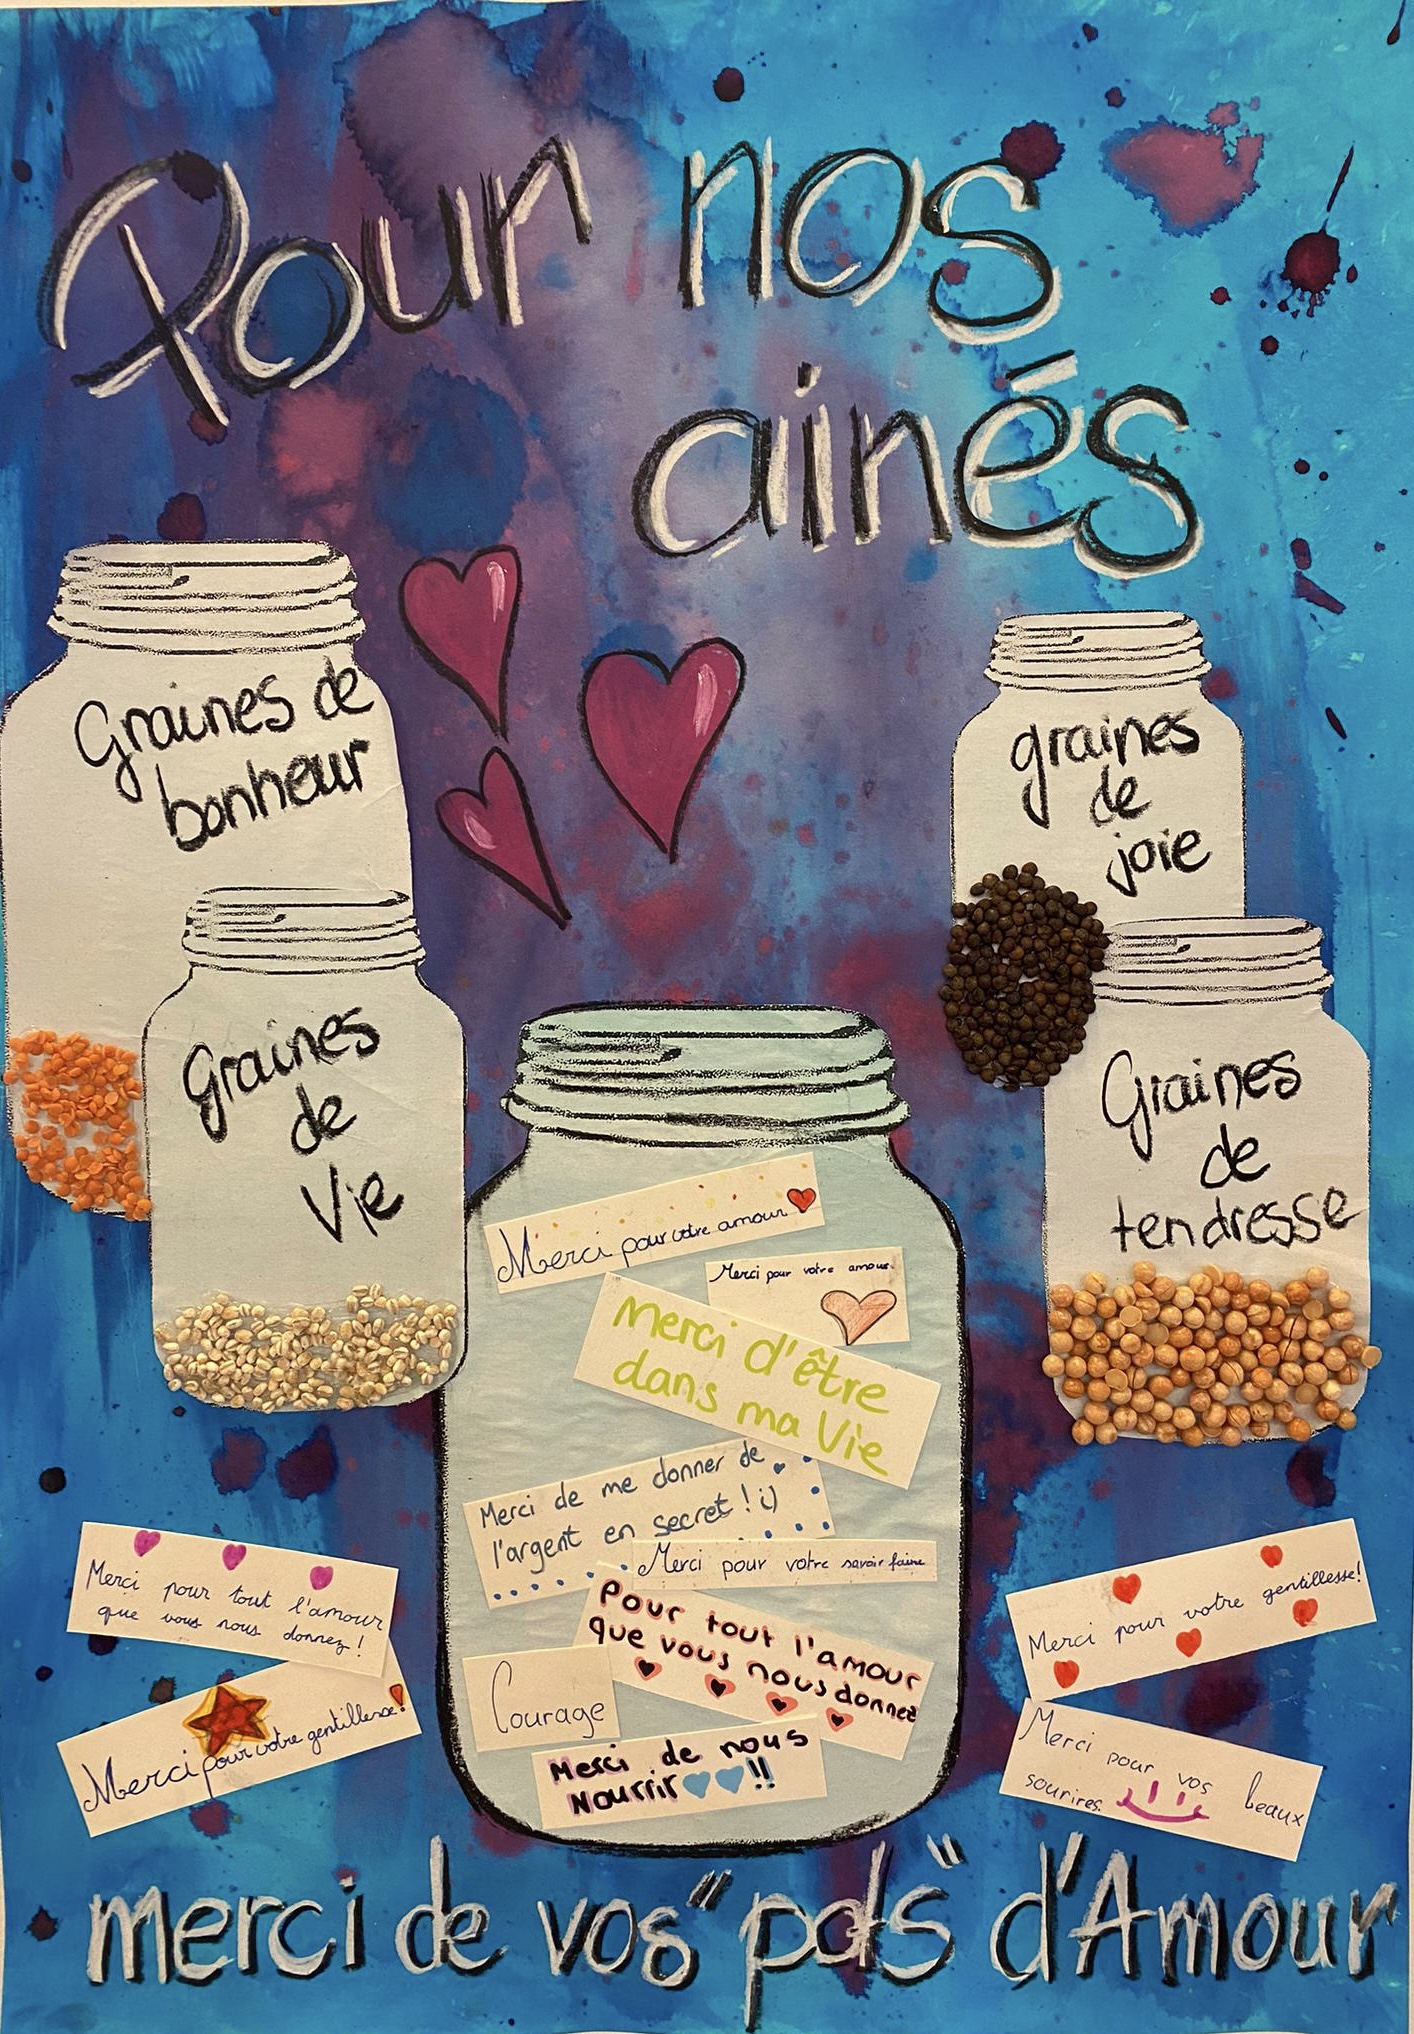 Pour nos
ainés
Graines de
bonheur
graines
de
joie
Graines
de
Vie
Graines
de
tendresse
Merci pour votre amour
Merci pour votre amour.
Merci d'être
dans ma Vie
Merci de me donner de
l'argent en secret ! ;)
Merci pour votre savoir faire
Pour tout l'amour
que vous nous donnez
Courage
Merci de nous
Nourrir !!
Merci pour tout l'amour
que vous nous donnez !
Merci pour votre gentillesse !
Merci pour votre gentillesse !
Merci pour vos beaux
sourires.
merci de vos "pots" d'Amour